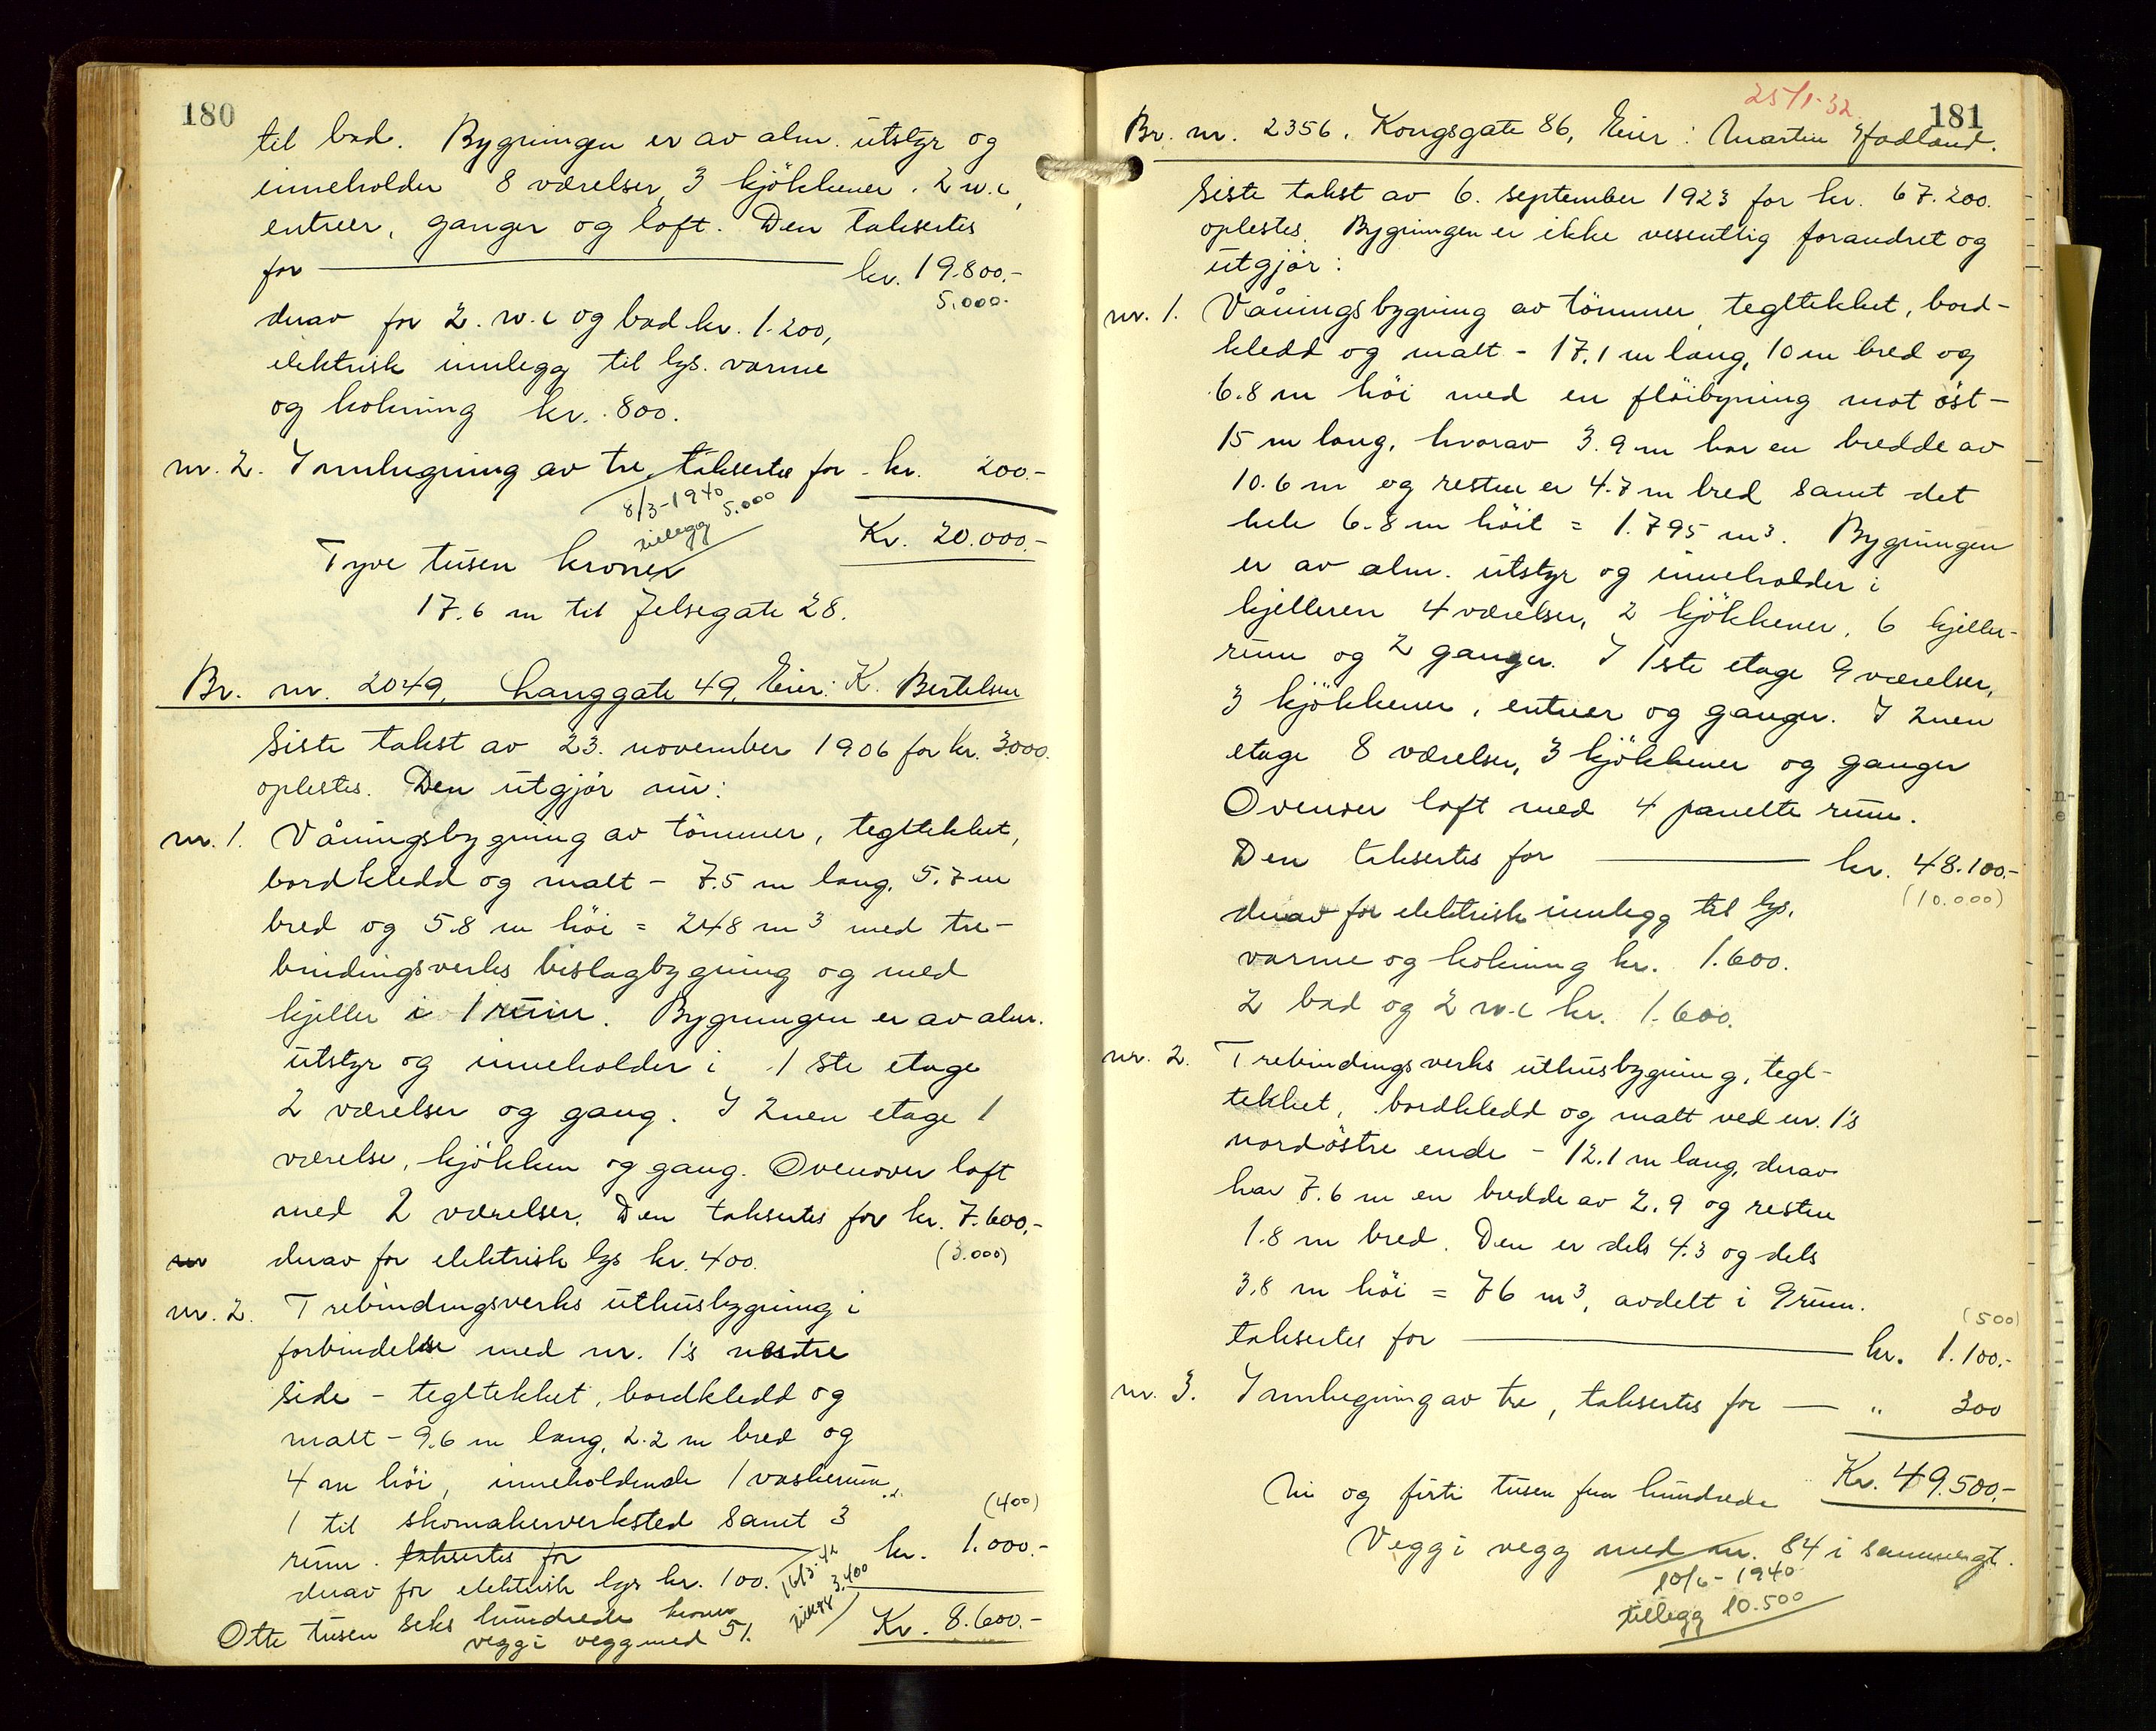 180
til bad. Bygningen er av alm. utstyr og
inneholder 8 værelser, 3 kjökkener. 2 w.c,
entreer, ganger og loft. Den taksertes
for kr. 19.800.-
5.000.-
derav for 2. w.c og bad kr. 1.200,
elektrisk innlegg til lys. varme
og kokning kr. 800.
nr. 2. Innhegning av tre, taksertes for kr. 200.-
8/3-1940
tillegg 5.000
Kr. 20.000.-
Tyve tusen kroner
17.6 m til Jelsegate 28.
Br. nr. 2049, Langgate 49, Eier: K. Bertelsen
Siste takst av 23. november 1906 for kr. 3000.
oplestes. Den utgjör nu:
nr. 1. Våningsbygning av tömmer, tegltekket,
bordkledd og malt - 7.5 m lang, 5.7 m
bred og 5.8 m höi = 248 m3 med tre-
bindingsverks bislagbygning og med
kjeller i 1 rum. Bygningen er av alm.
utstyr og inneholder i 1ste etage
2 værelser og gang. I 2nen etage 1
værelse, kjökken og gang. Ovenover loft
med 2 værelser. Den taksertes for kr. 7.600.-
nr derav for elektrisk lys kr. 400. (3.000)
nr. 2. Trebindingsverks uthusbygning i
forbindelse med nr. 1's vestre
side - tegltekket, bordkledd og
malt - 9.6 m lang, 2.2 m bred og
4 m höi, inneholdende 1 vaskerum,
1 til skomakerverksted samt 3 (400)
rum. taksertes for kr. 1.000.-
derav for elektrisk lys kr. 100.
16/3-42
tillegg 3.400
Otte tusen seks hundrede kroner Kr. 8.600.-
vegg i vegg med 51.
25/1-32
181
Br. nr. 2356. Kongsgate 86, Eier: Martin Hadland.
Siste takst av 6. september 1923 for kr. 67.200.
oplestes. Bygningen er ikke vesentlig forandret og
utgjör:
nr. 1. Våningsbygning av tömmer, tegltekket, bord-
kledd og malt - 17.1 m lang, 10 m bred og
6.8 m höi med en flöibyning mot öst -
15 m lang, hvorav 3.9 m har en bredde av
10.6 m og resten er 4.7 m bred samt det
hele 6.8 m höit = 1.795 m3. Bygningen
er av alm. utstyr og inneholder i
kjelleren 4 værelser, 2 kjökkener, 6 kjeller-
rum og 2 ganger. I 1ste etage 9 værelser,
3 kjökkener, entreer og ganger. I 2nen
etage 8 værelser, 3 kjökkener og ganger
Ovenover loft med 4 panelte rum.
Den taksertes for kr. 48.100.-
(10.000)
derav for elektrisk innlegg til lys,
varme og kokning kr. 1.600.
2 bad og 2 w.c kr. 1.600.
nr. 2. Trebindingsverks uthusbygning, tegl-
tekket, bordkledd og malt ved nr. 1's
nordöstre ende - 12.1 m lang, derav
har 7.6 m en bredde av 2.9 og resten
1.8 m bred. Den er dels 4.3 og dels
3.8 m höi = 76 m3, avdelt i 9 rum.
(500)
taksertes for kr. 1.100.-
nr. 3. Innhegning av tre, taksertes for " 300
Kr. 49.500.-
Ni og firti tusen fem hundrede
Vegg i vegg med nr. 84 i samme gt.
10/6-1940
tillegg 10.500